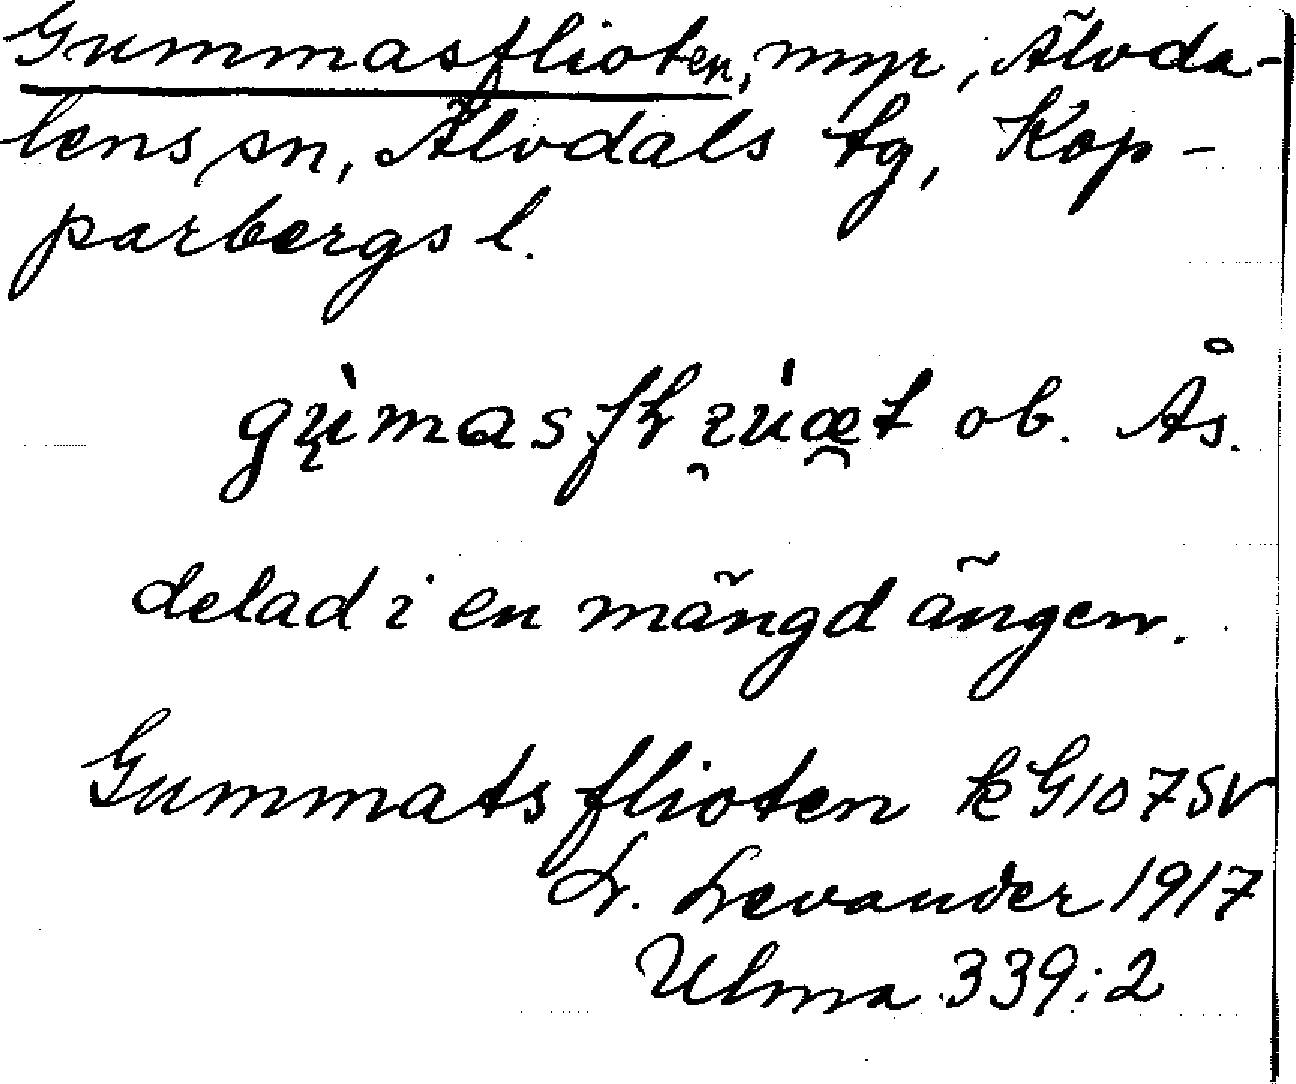 Gummasflioten, myr, Älvda-
lens sn, Älvdals tg, Kop-
parbergs l.
ob. Ås.
delad i en mängd ängen.
Gummatsflioten k G107SV
L. Levander 1917
Ulma 339:2